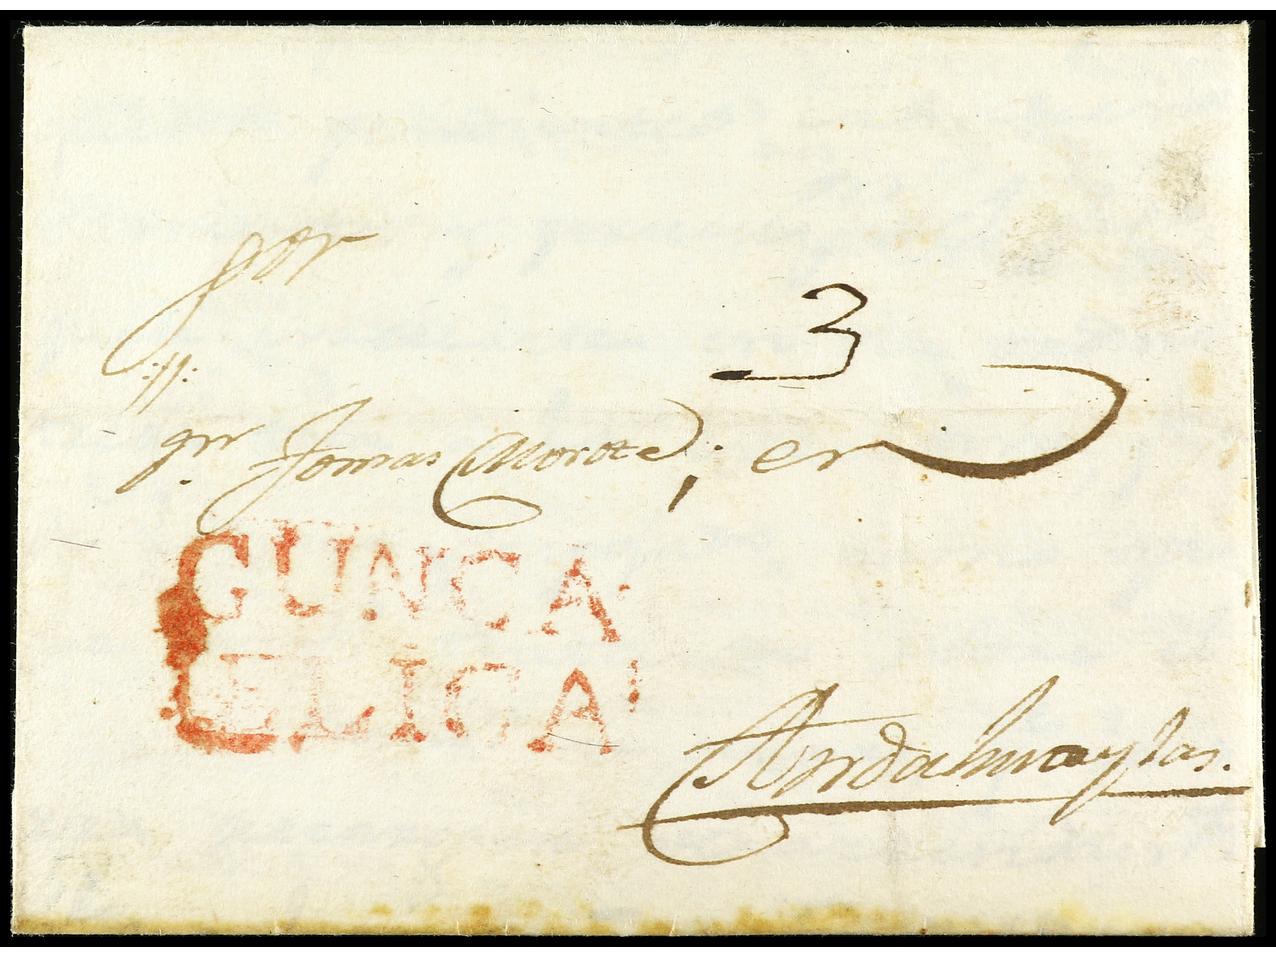 Sor
3
://:
Dn Tomas Morote; en
GUNCA
BELICA
Andahuaylas.